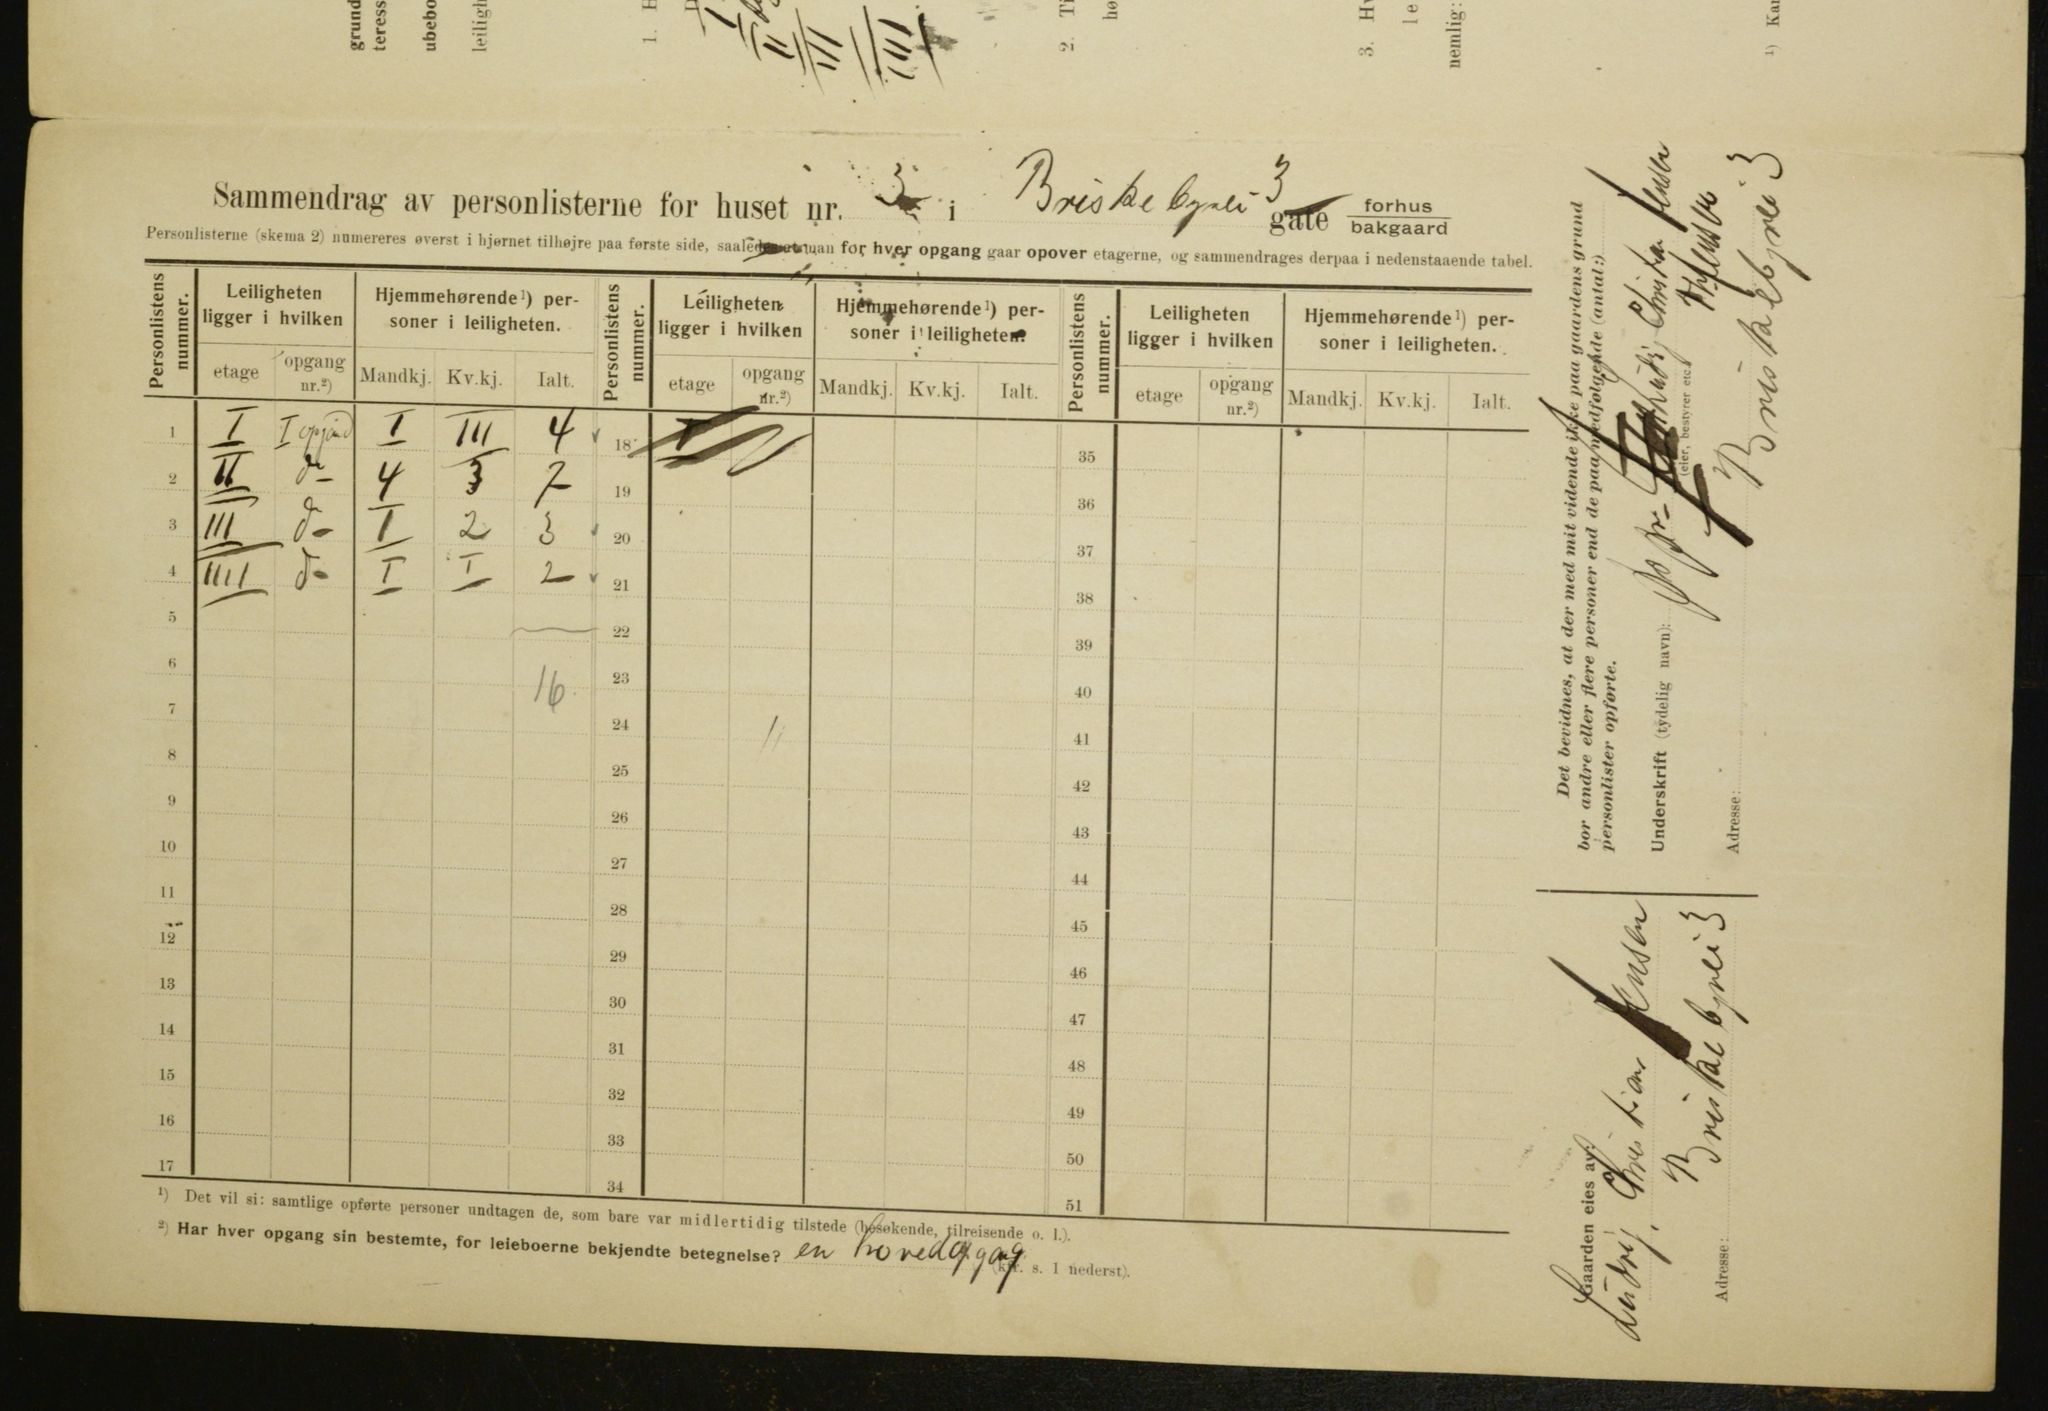 grund
teress
ubebo
leiligh
1. H
2. Ti
hø
3. Hv
le
nemlig:
¹) Kan
I
II
III
IIII
Sammendrag av personlisterne for huset nr. 3 i Briskebyvei 3 gate forhus
bakgaard
Personlisterne (skema 2) numereres øverst i hjørnet tilhøjre paa første side, saaledes at man for hver opgang gaar opover etagerne, og sammendrages derpaa i nedenstaaende tabel.
Personlistens nummer. Leiligheten ligger i hvilken Hjemmehørende¹) personer i leiligheten. Personlistens nummer. Leiligheten ligger i hvilken Hjemmehørende¹) personer i leiligheten. Personlistens nummer. Leiligheten ligger i hvilken Hjemmehørende¹) personer i leiligheten.
etage opgang nr.²) Mandkj. Kv.kj. Ialt. etage opgang nr.²) Mandkj. Kv.kj. Ialt. etage opgang nr.²) Mandkj. Kv.kj. Ialt.
1 I I opgand I III 4 18 35
2 II do 4 3 7 19 36
3 III do I 2 3 20 37
4 IIII do I I 2 21 38
5 22 39
6 16 23 40
7 24 41
8 25 42
9 26 43
10 27 44
11 28 45
12 29 46
13 30 47
14 31 48
15 32 49
16 33 50
17 34 51
¹) Det vil si: samtlige opførte personer undtagen de, som bare var midlertidig tilstede (besøkende, tilreisende o. l.).
²) Har hver opgang sin bestemte, for leieboerne bekjendte betegnelse? en hovedopgang (kfr. s. 1 nederst).
Det bevidnes, at der med mit vidende ikke paa gaardens grund
bor andre eller flere personer end de paa medfølgende (antal:)
personlister opførte.
Underskrift (tydelig navn): Ludvig Christian Jensen
(eier, bestyrer etc.)
Adresse: Briskebyvei 3
Gaarden eies av:
Ludvig, Christian Jensen
Adresse: Briskebyvei 3